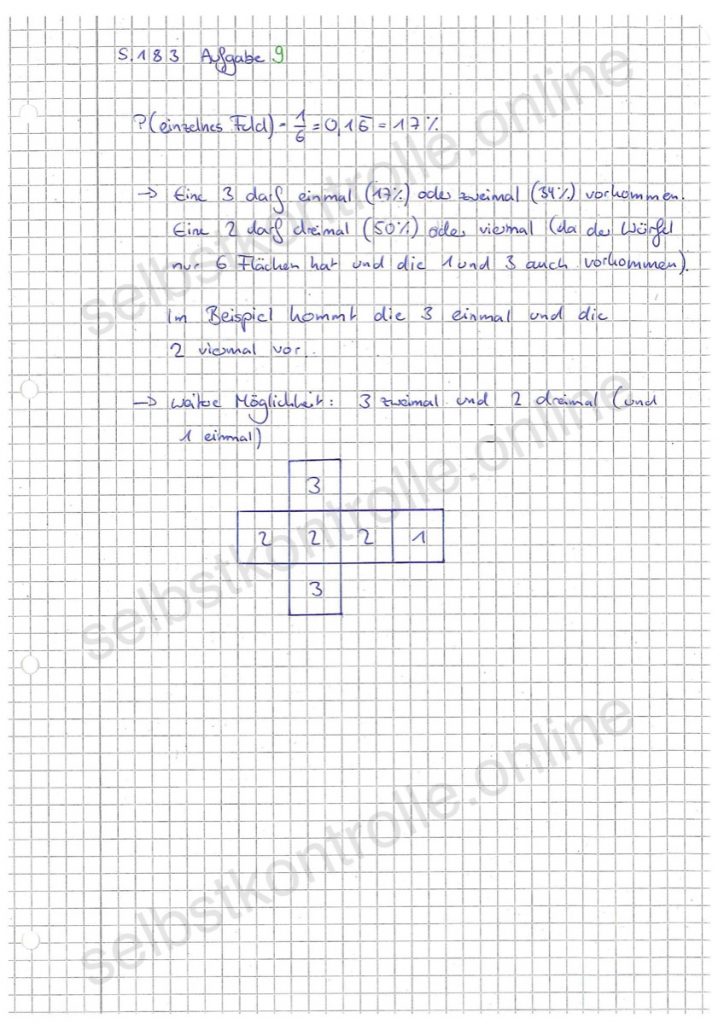 S.183 Aufgabe 9
P(einzelnes Feld) = 1/6 = 0,16̅ = 17%
→ Eine 3 darf einmal (17%) oder zweimal (34%) vorkommen.
Eine 2 darf dreimal (50%) oder viermal (da der Würfel
nur 6 Flächen hat und die 1 und 3 auch vorkommen).
Im Beispiel kommt die 3 einmal und die
2 viermal vor.
→ weitere Möglichkeit: 3 zweimal und 2 dreimal (und
1 einmal)
3
2 2 2 1
3
selbstkontrolle.online
selbstkontrolle.online
selbstkontrolle.online